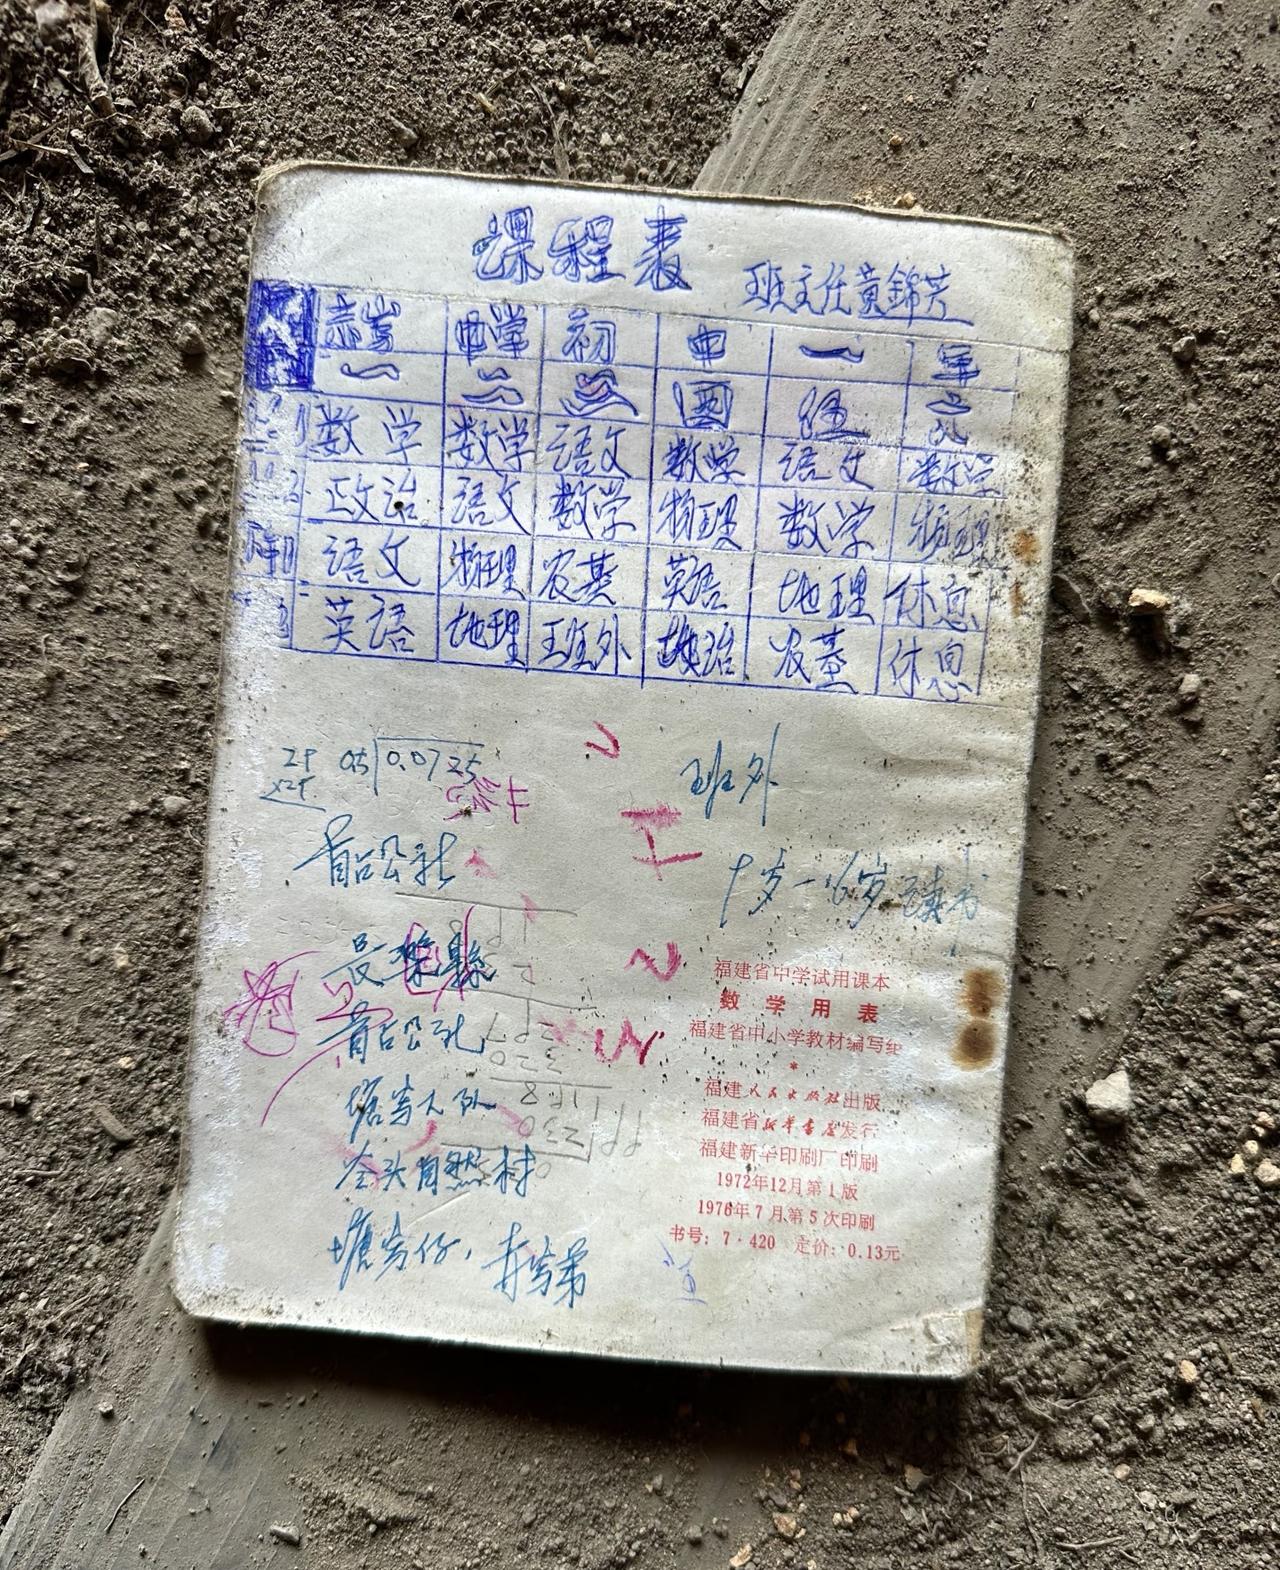 课程表
班主任黄錦芳
中学 初 中 一 年
一 二 三 四 五 六
数学 数学 语文 数学 语文 数学
政治 语文 数学 物理 数学 物理
语文 物理 农基 英语 地理 休息
英语 地理 班外 政治 农基 休息
0.5 0.0725
班外
首占公社
十岁一16岁读书
長樂縣
首占公社
塘岑大队
岑头自然村
福建省中学试用课本
数学用表
福建省中小学教材编写组
*
福建人民出版社出版
福建省新华书店发行
福建新华印刷厂印刷
1972年12月第1版
1976年7月第5次印刷
书号：7·420 定价：0.13元